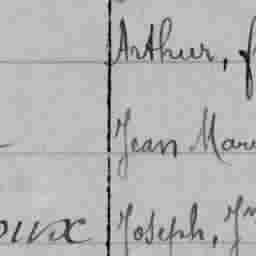 Arthur, f
Jean Mar
oux Joseph, Jm